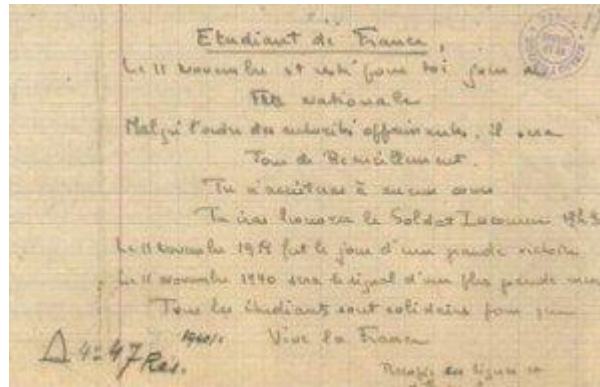 Etudiant de France,
Le 11 Novembre est resté pour toi jour de
Fête Nationale
Malgré l'ordre des autorités opprimantes, il sera
Jour de Recueillement.
Tu n'assisteras à aucun cours
Tu iras honorer le Soldat Inconnu 17h30
Le 11 Novembre 1918 fut le jour d'une grande victoire
Le 11 novembre 1940 sera le signal d'une plus grande encore
Tous les étudiants sont solidaires pour que
Vive la France
1940/1
Δ 4° 47 Rés.
Recopie ces lignes et